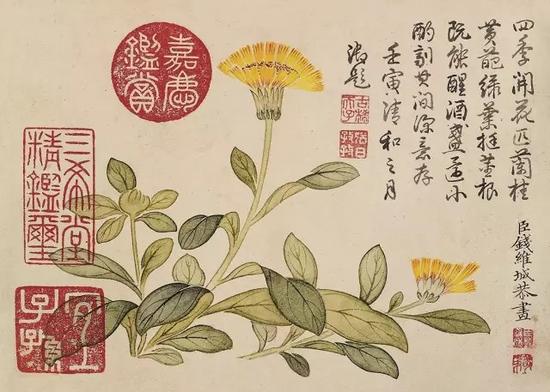 四季開花匹蘭桂
黃葩綠葉挺根
既能醒酒盞還小
酌其間深意存
壬寅清和之月
御題
古稀天子
猶日孜孜
臣錢維城恭畫
嘉慶鑑賞
三希堂精鑑璽
宜子孫